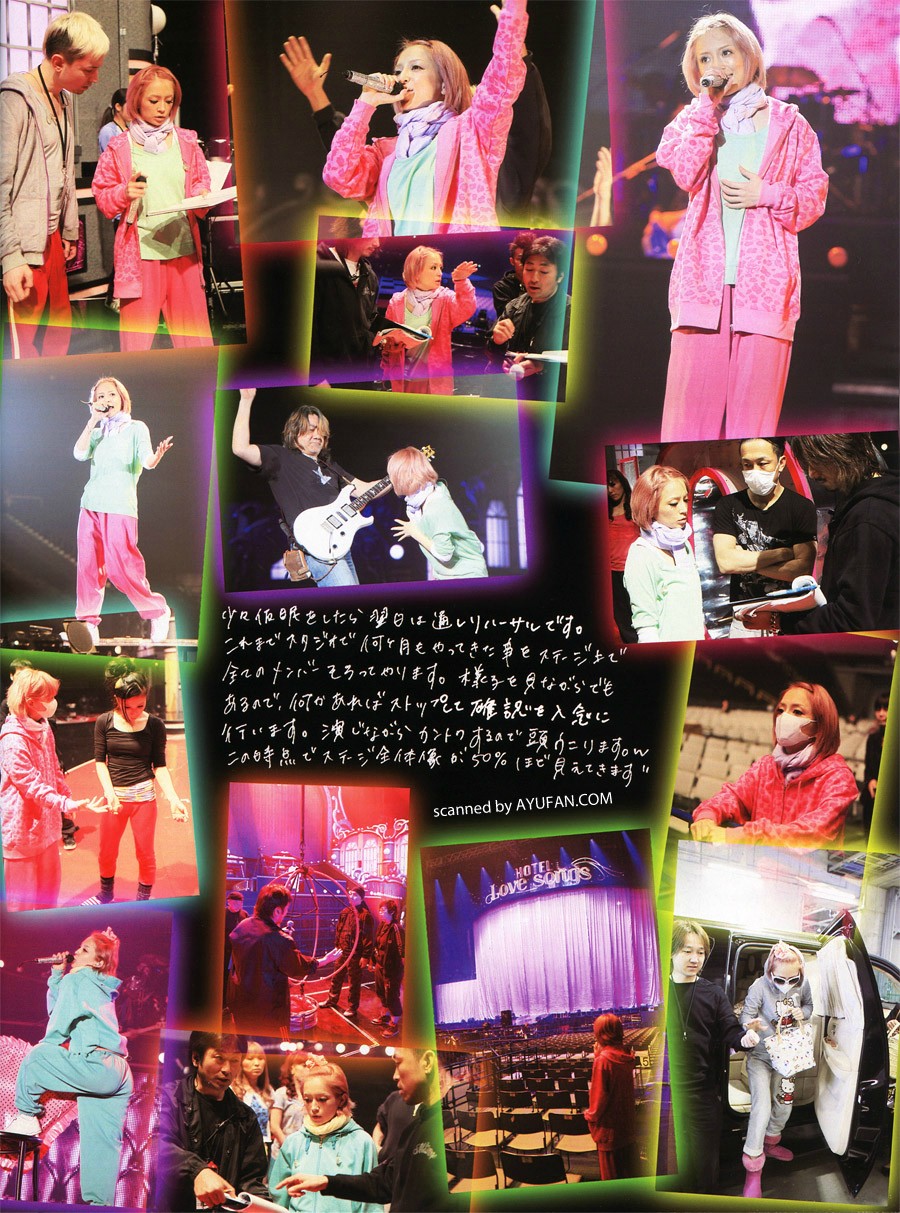 少々仮眠をしたら翌日は通しリハーサルです。
これまでスタジオで何ヶ月もやってきた事をステージ上で
全てのメンバーそろってやります。様子を見ながらでも
あるので、何かあればストップして確認を入念に
行います。演じながらカントクするので頭ウニります。w
この時点でステージ全体像が50%ほど見えてきます"
scanned by AYUFAN.COM
HOTEL
Love songs